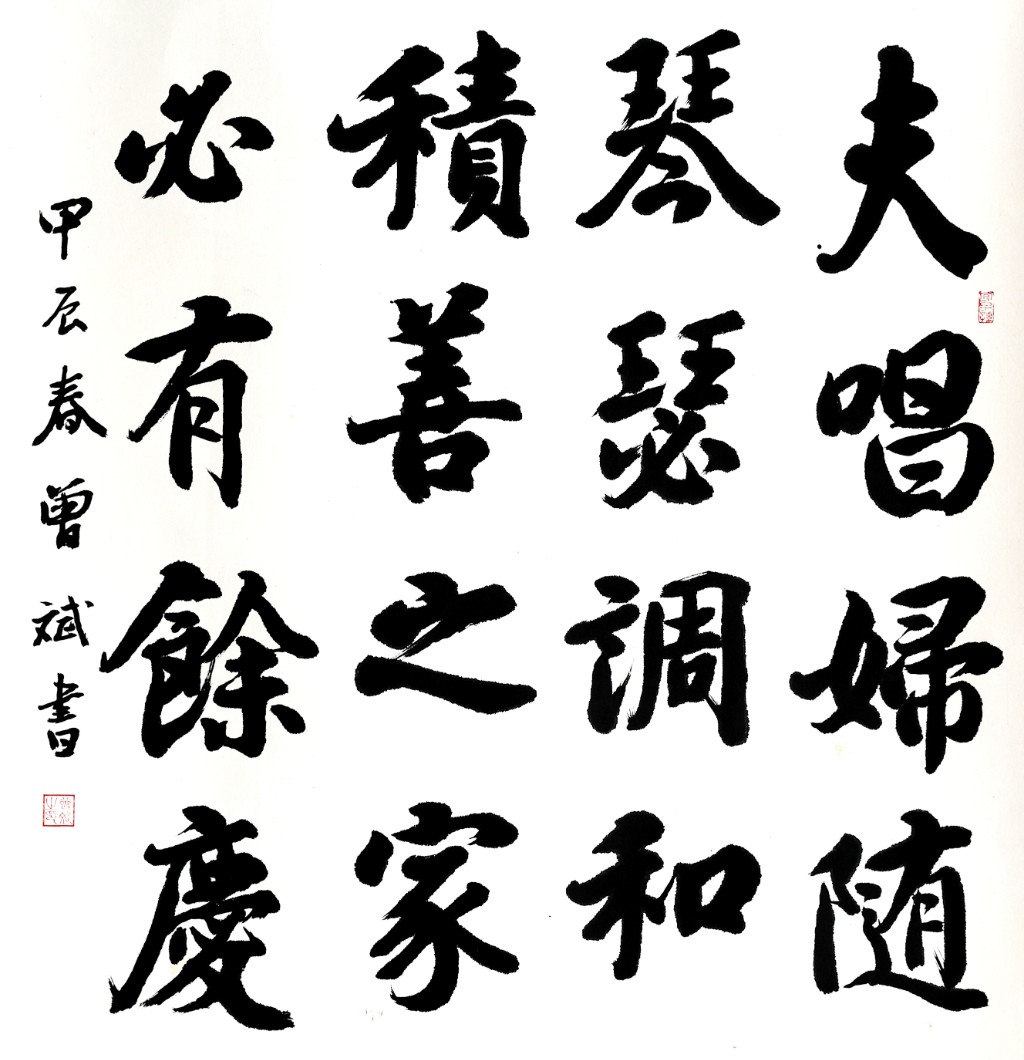 夫唱婦随
琴瑟調和
積善之家
必有餘慶
甲辰春曾斌書